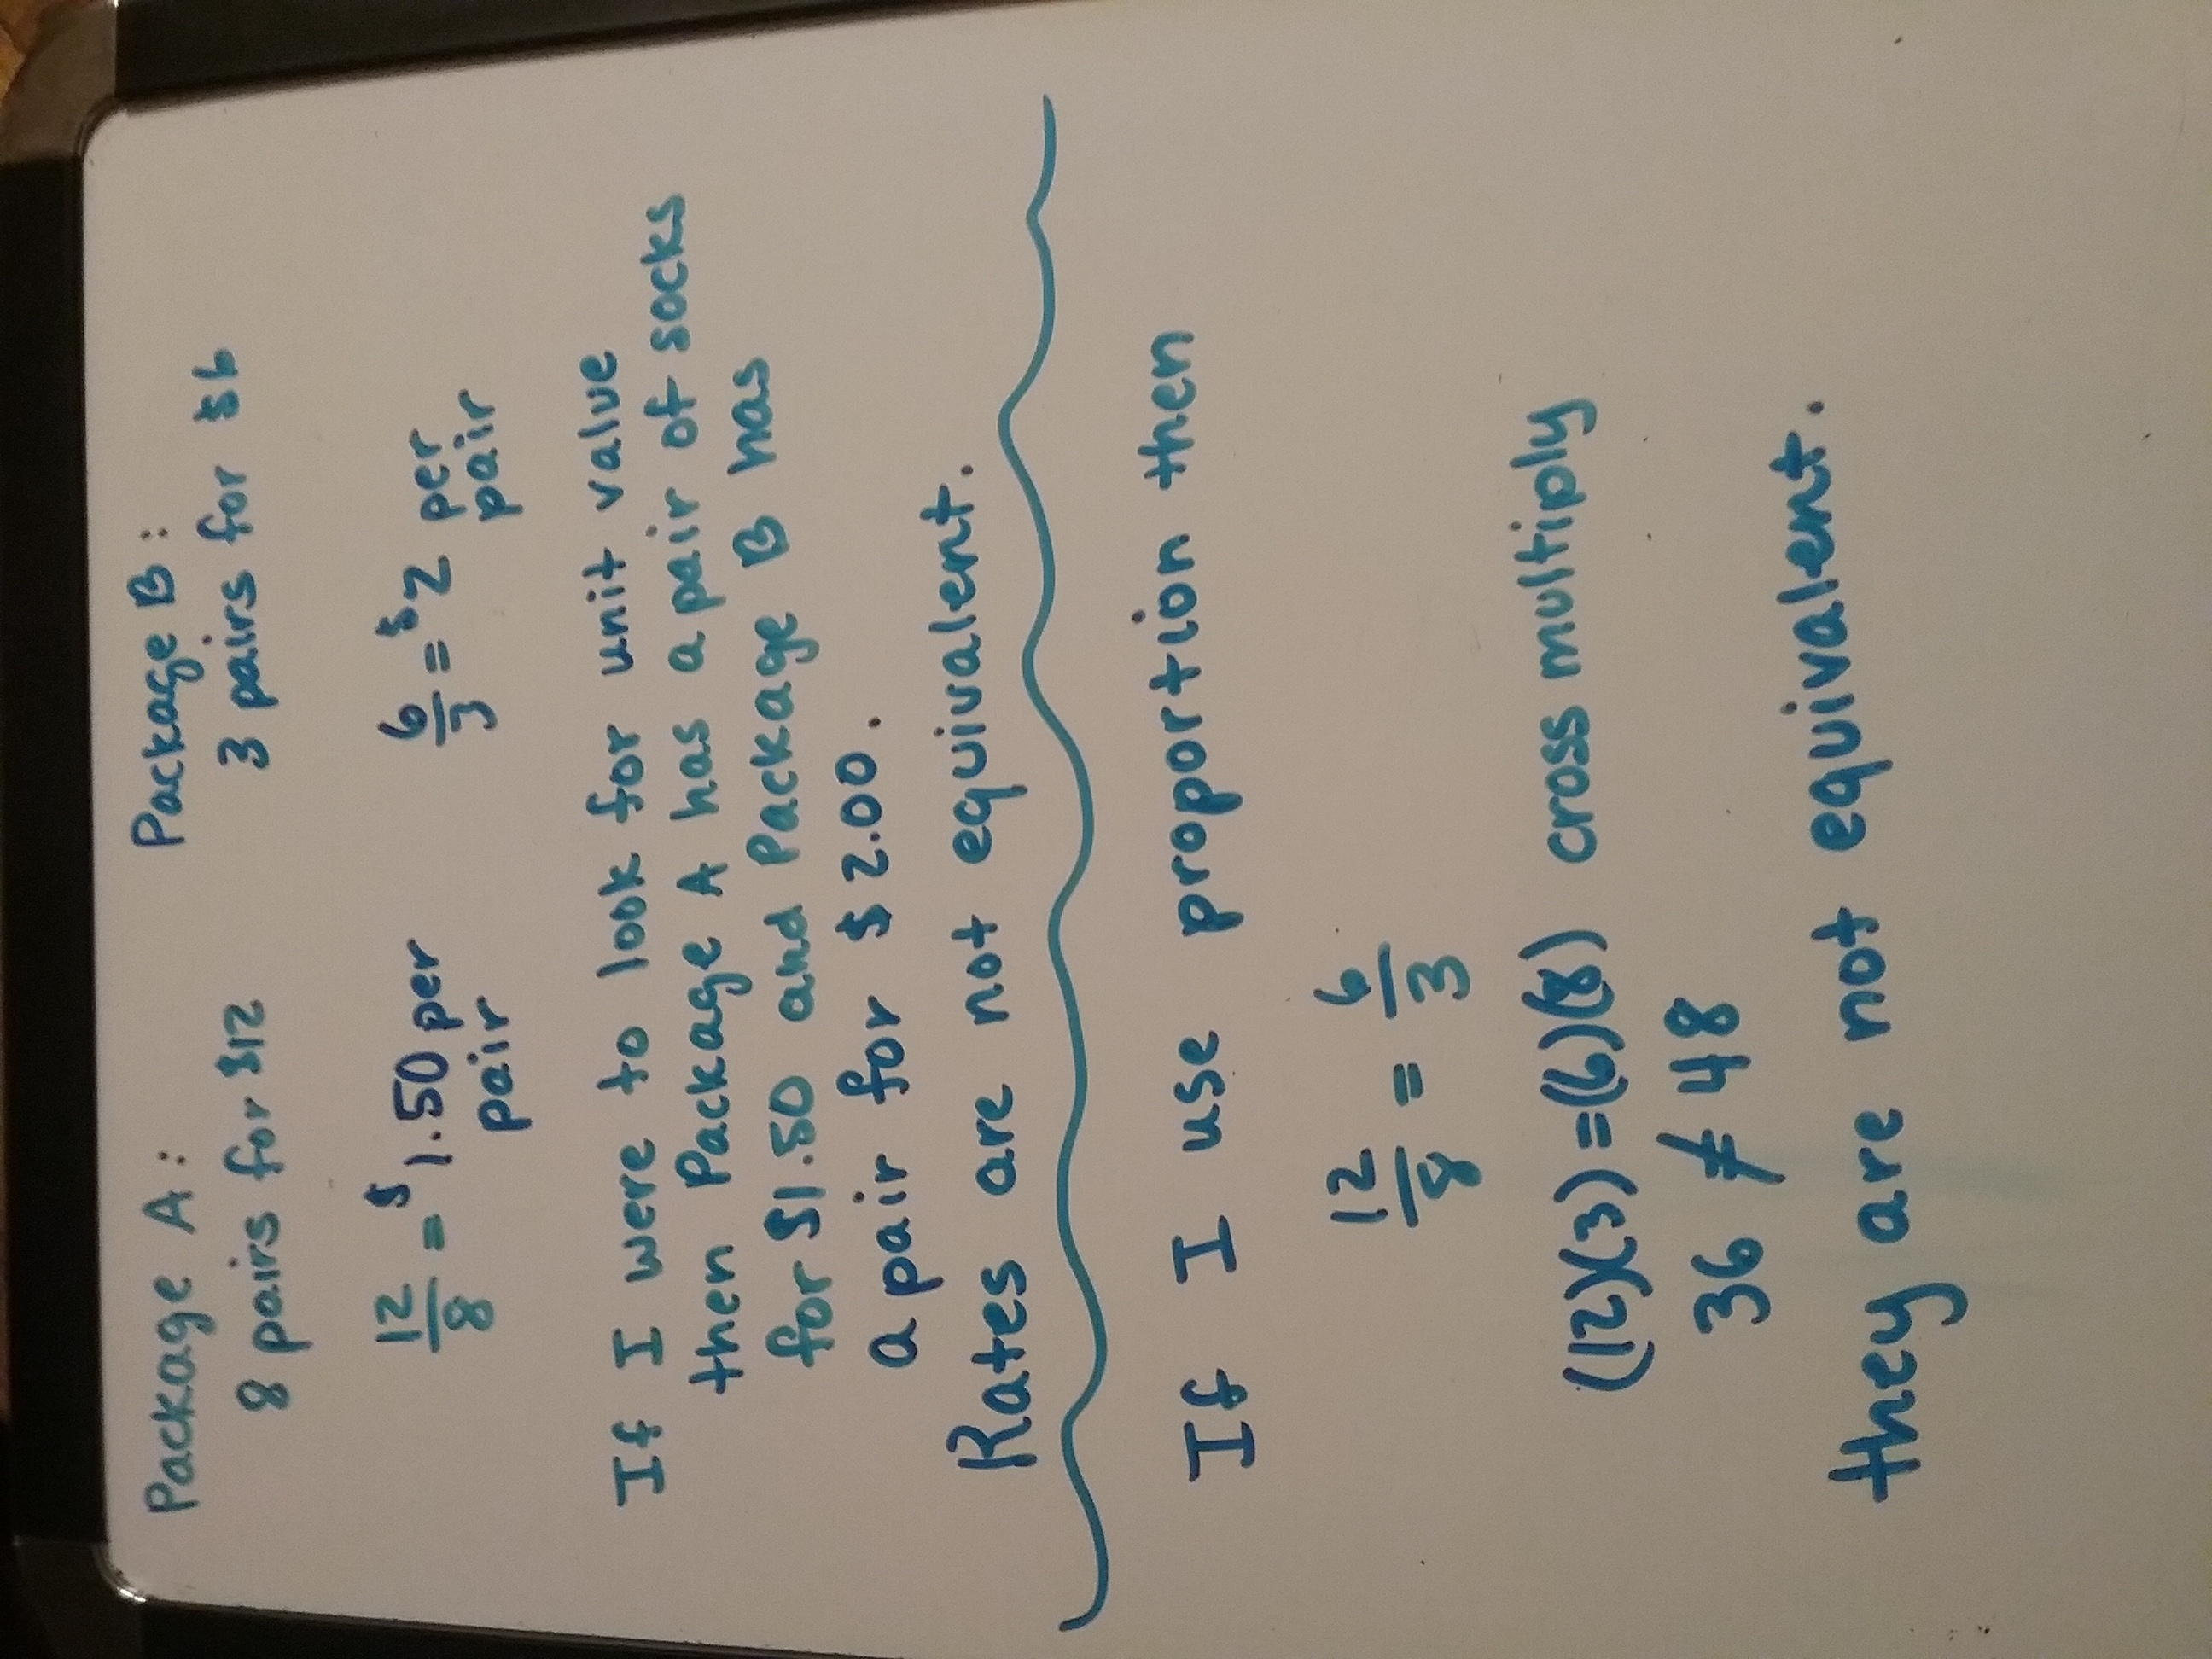 Package A: Package B:
8 pairs for $12 3 pairs for $6
12/8 = $1.50 per pair 6/3 = $2 per pair
If I were to look for unit value
then Package A has a pair of socks
for $1.50 and Package B has
a pair for $2.00.
Rates are not equivalent.
If I use proportion then
12/8 = 6/3
(12)(3)=(6)(8) cross multiply
36 ≠ 48
they are not equivalent.